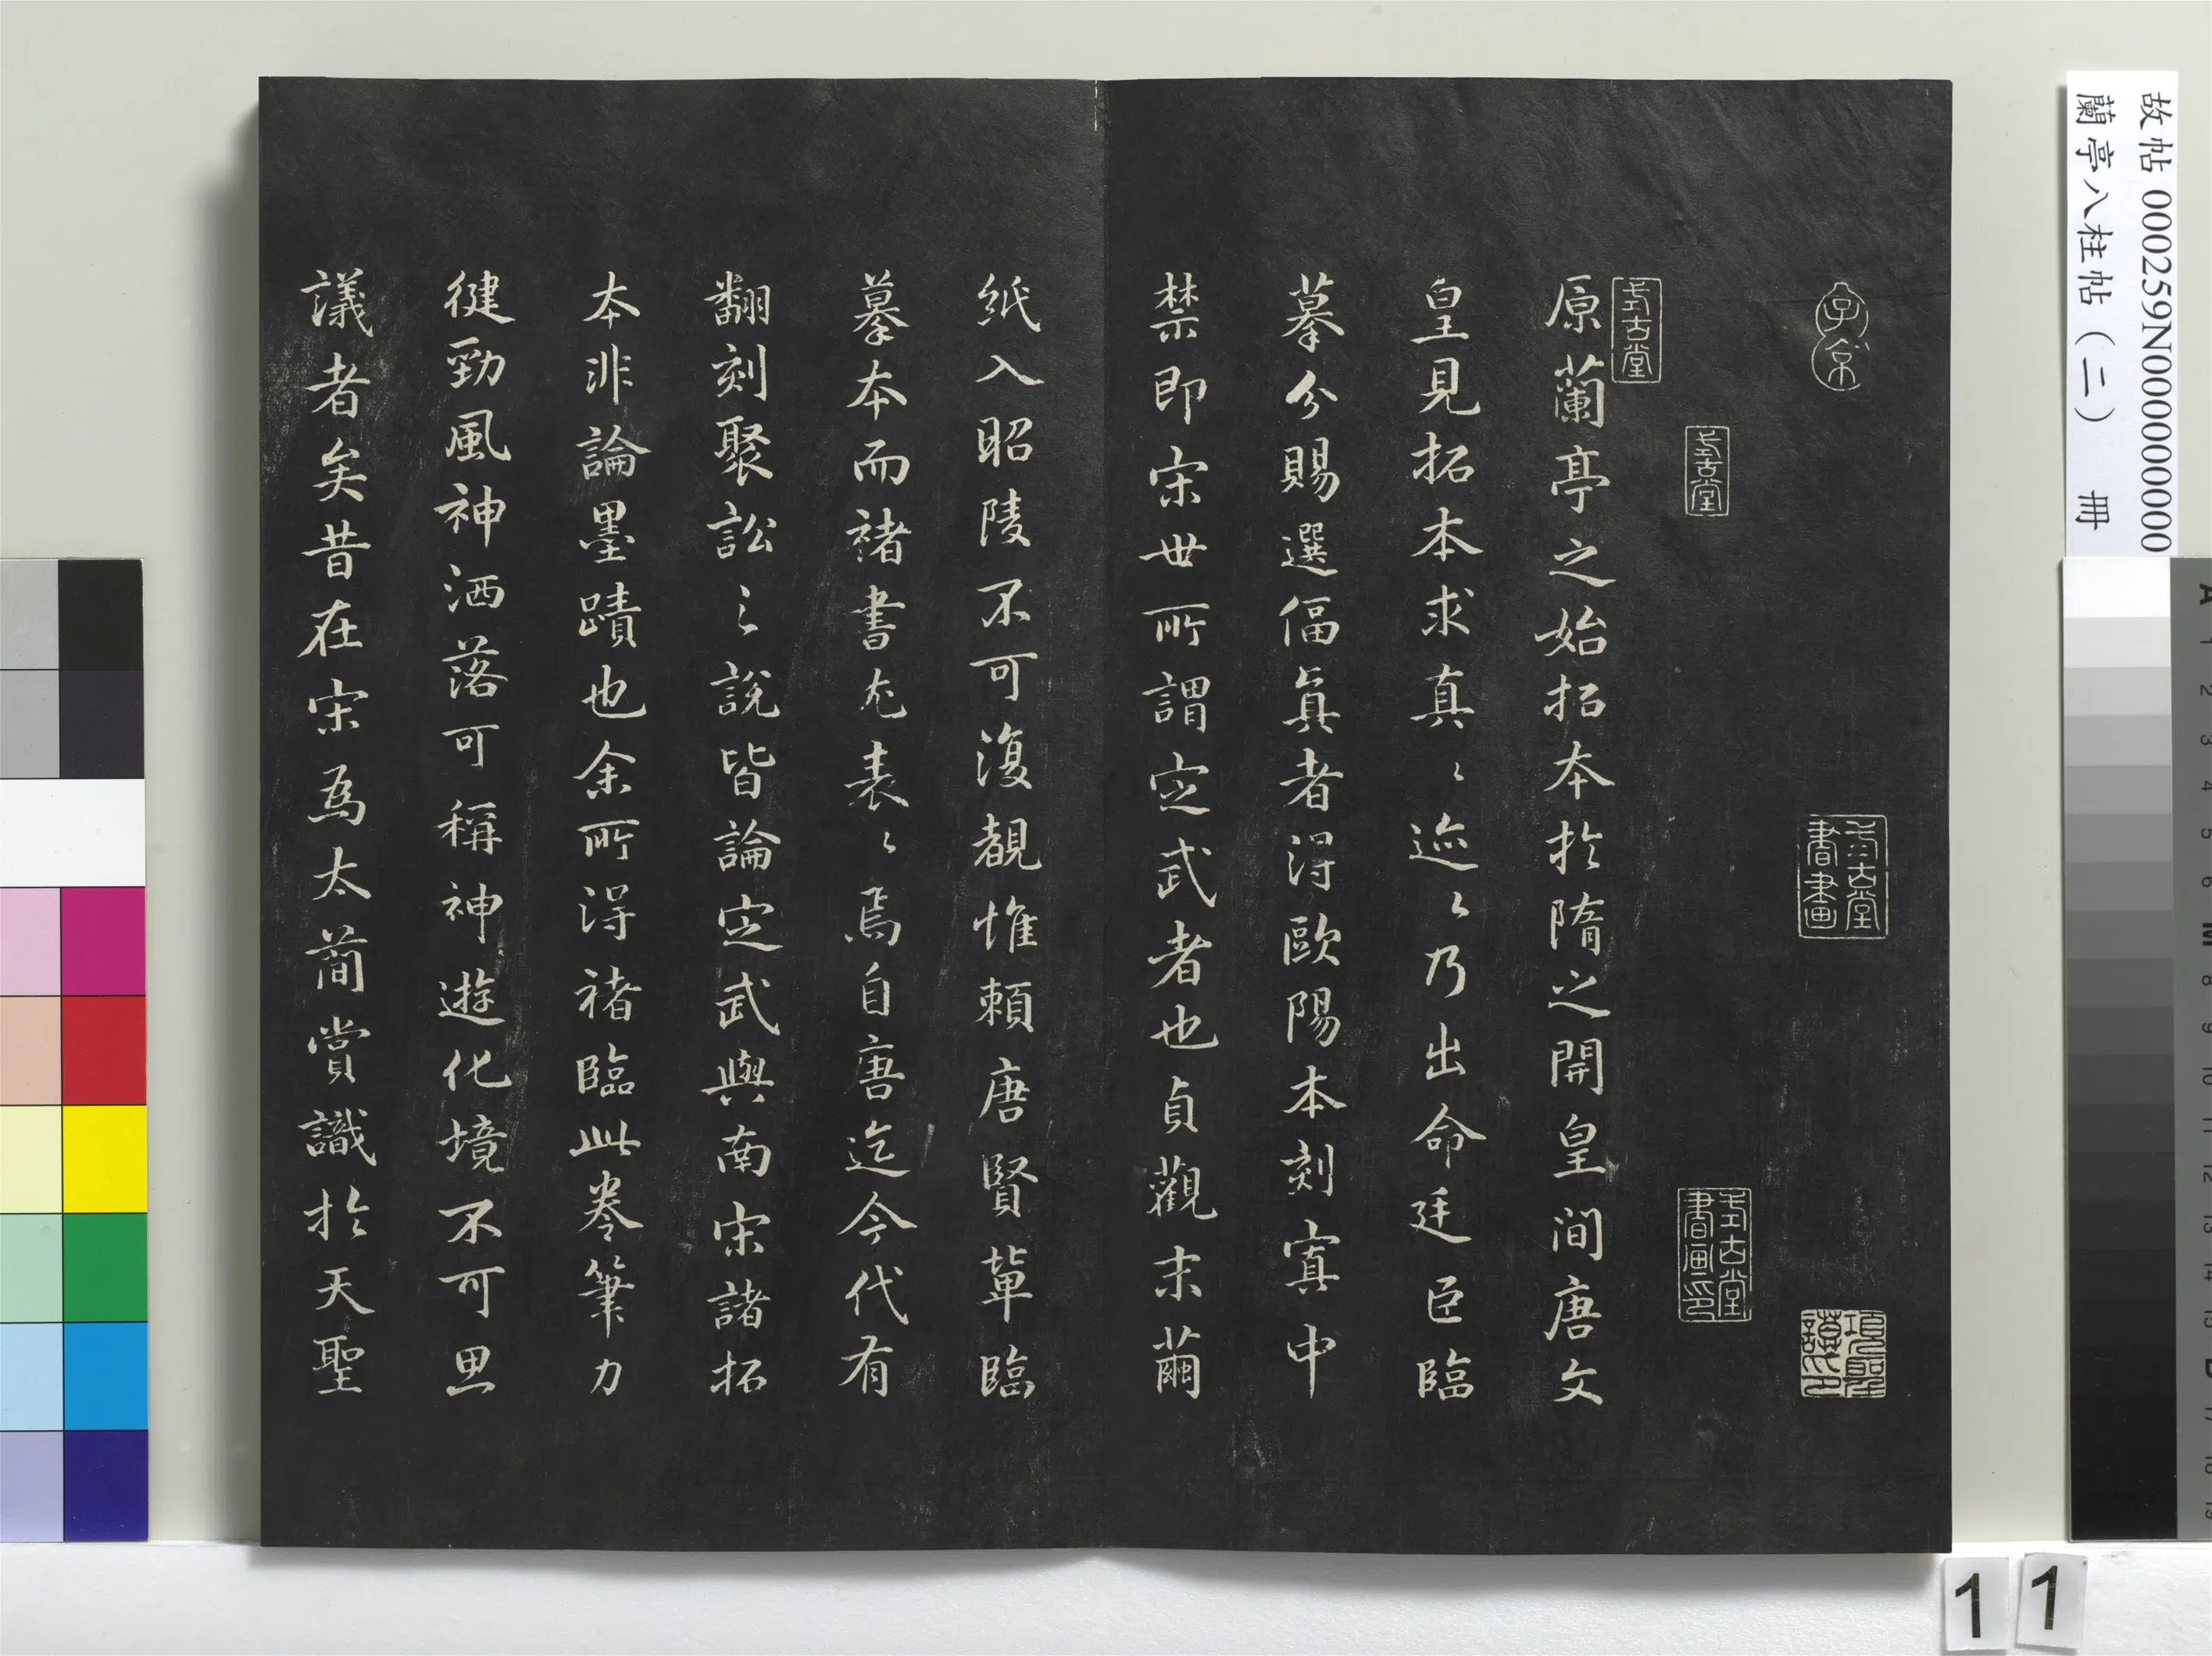 故帖 000259N000000000
蘭亭八柱帖（二） 冊
子京
式古堂
書畫
項聖
謨印
式古堂
式古堂
書畫印
式古堂
原蘭亭之始拓本於隋之開皇間唐文
皇見拓本求真〻迹〻乃出命廷臣臨
摹分賜選偪真者得歐陽本刻寘中
禁即宋世所謂定武者也貞觀末繭
紙入昭陵不可復覩惟賴唐賢輩臨
摹本而褚書尤表〻焉自唐迄今代有
翻刻聚訟之說皆論定武與南宋諸拓
本非論墨蹟也余所得褚臨此卷筆力
健勁風神洒落可稱神遊化境不可思
議者矣昔在宋為太簡賞識於天聖
11